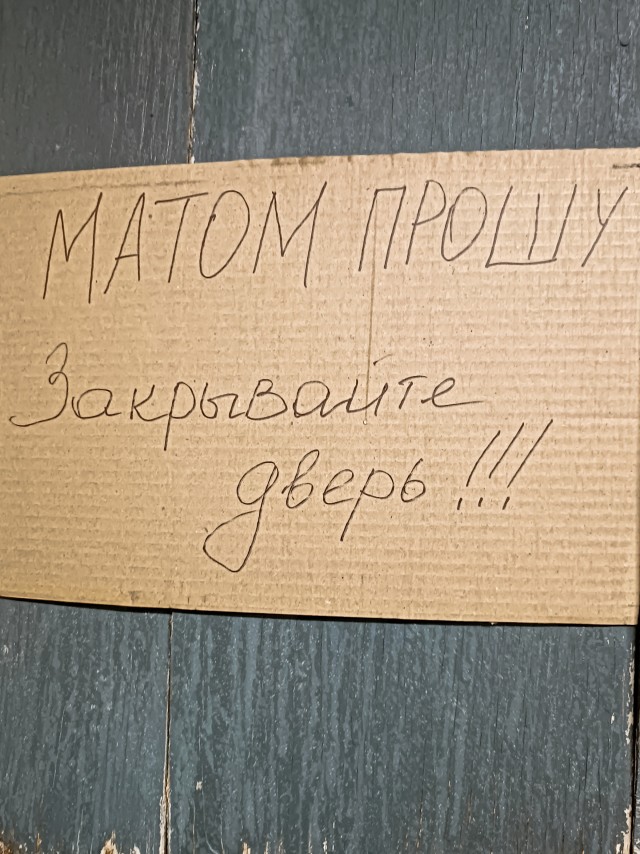 МАТОМ ПРОШУ
Закрывайте
дверь!!!